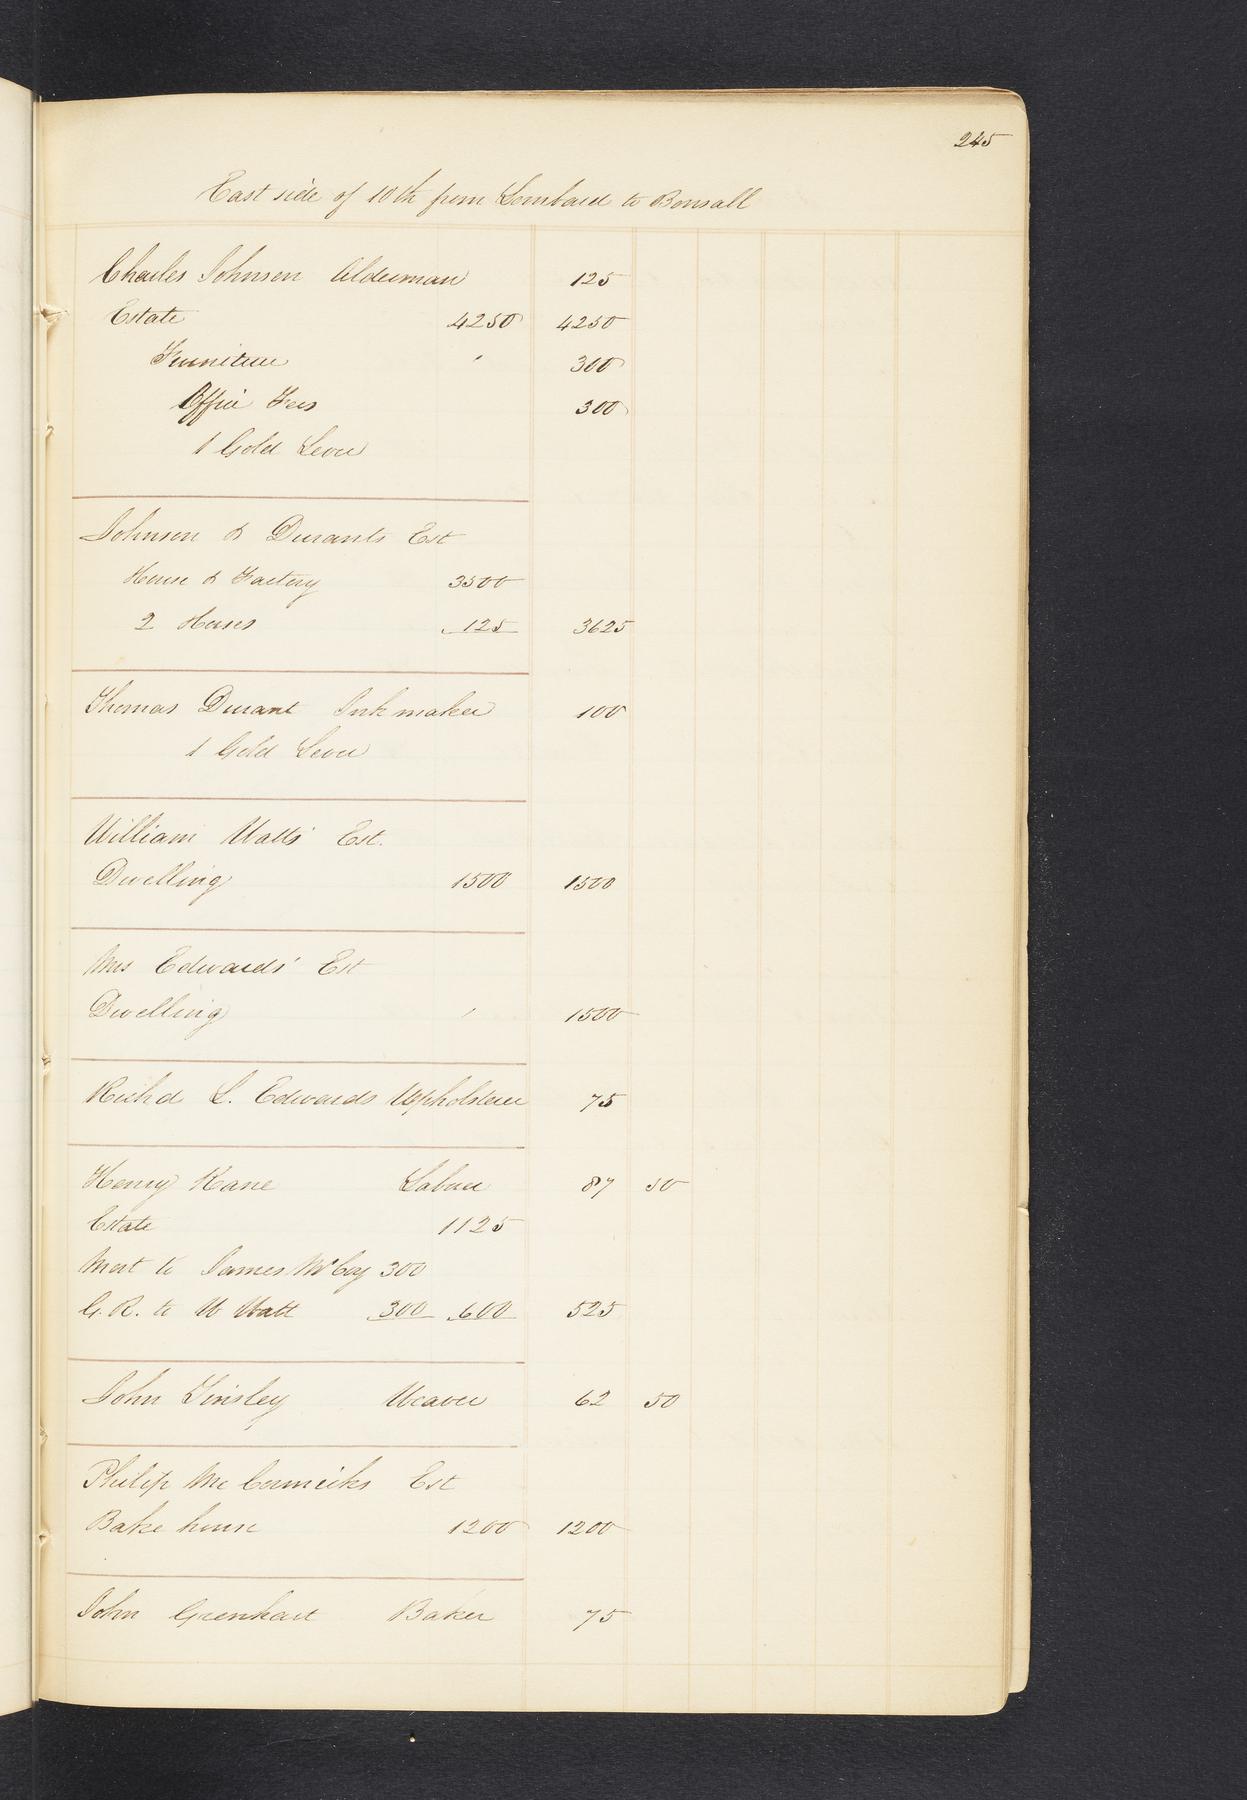 245
East side of 10th from Lombard to Bonsall
Charles Johnson Alderman 125
Estate 4250 4250
Furniture " 300
Office Fees 300
1 Gold Lever
Johnson & Durants Est
House & Factory 3500
2 Horses 125 3625
Thomas Durant Ink maker 100
1 Gold Lever
William Watts' Est.
Dwelling 1500 1500
Mrs Edwards' Est
Dwelling " 1500
Richd L. Edwards Upholsterer 75
Henry Kane Laborer 87 50
Estate 1125
Mort to James McCoy 300
G. R. to W Watt 300 600 525
John Tinsley Weaver 62 50
Philip Mc Cormicks Est
Bake house 1200 1200
John Greenhart Baker 75